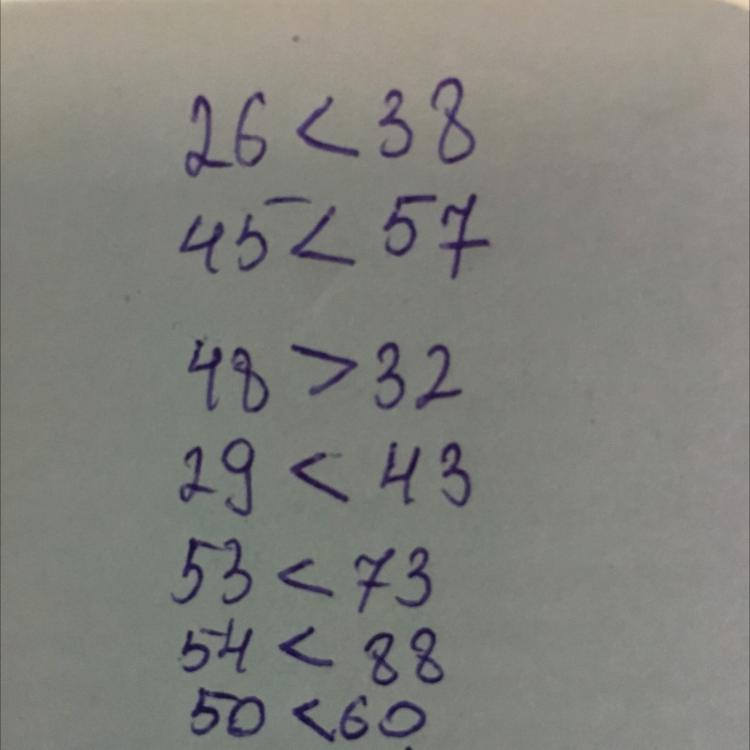 26 < 38
45 < 57
48 > 32
29 < 43
53 < 73
54 < 88
50 < 60